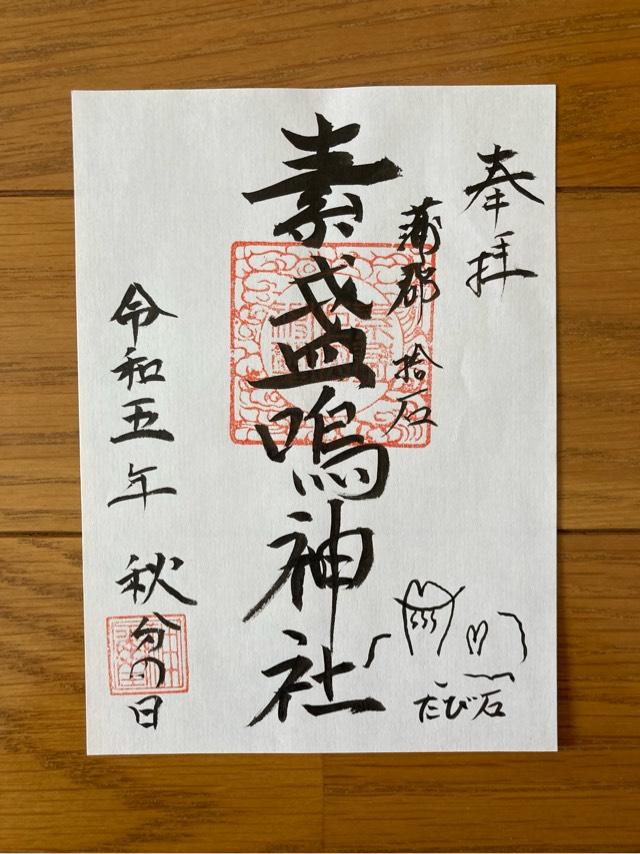 奉拝
蒲郡 拾石
素盞嗚神社
たび石
令和五年 秋分の日